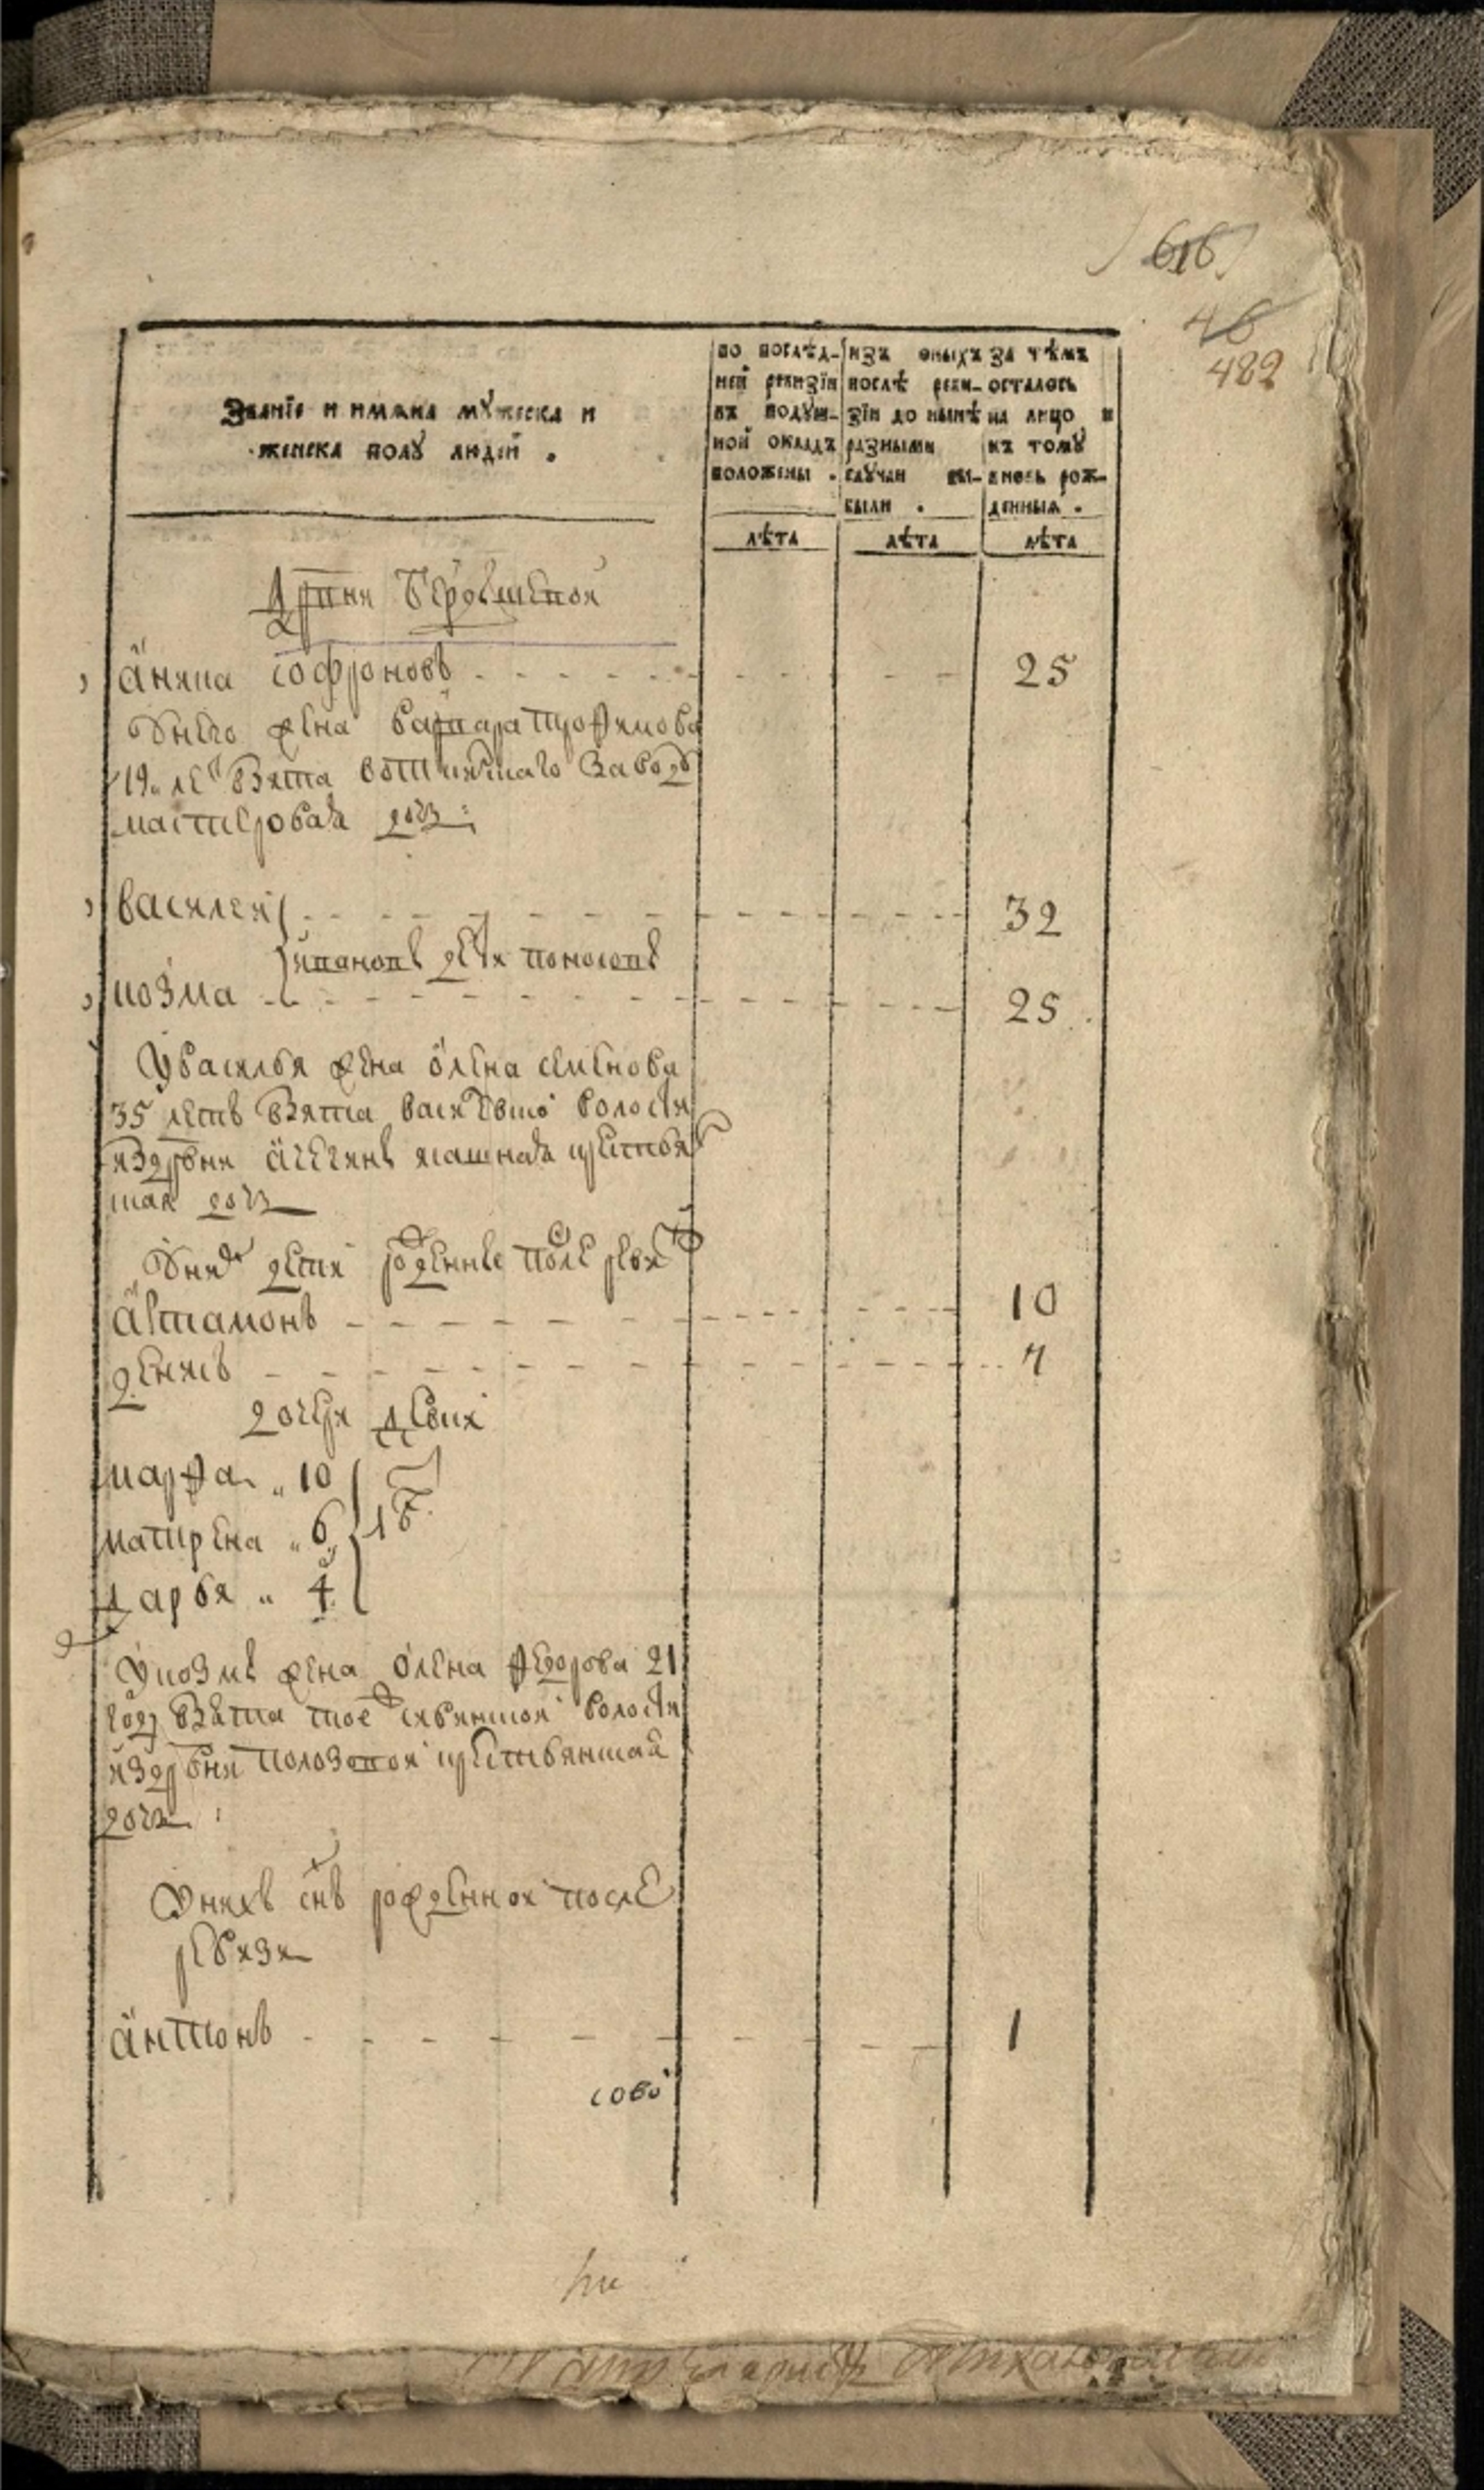 616
46
482
Званїе и имѧна мꙋжеска и
женска полꙋ людей .
по послѣд-
ней ревизїи
въ подуш-
ной окладъ
положены .
изъ оныхъ
послѣ реви-
зїи до нынѣ
разными
случаи вы-
были .
за тѣмъ
осталось
на лицо и
къ тому
вновь рож-
денныя .
лѣта
лѣта
лѣта
аника софроновъ 25
унего жена варвара трофимова
19 ле взята воткинскаго завода
мастеровая дочь
василей 32
ивановы дети
козма 25
Увасилья жена олена семенова
35 летъ взята волости
издрвни ясашная крестья
ская дочь
Уних дети рожденые после реви
артамонъ 10
денисъ 7
дочери девки
марфа 10
матрена 6
дарья 4
Укозмы жена олена федорова 21
году взята тое волости
издрвни крестьянская
дочь
Унихъ снъ рожденной после
ревизи
антонъ 1